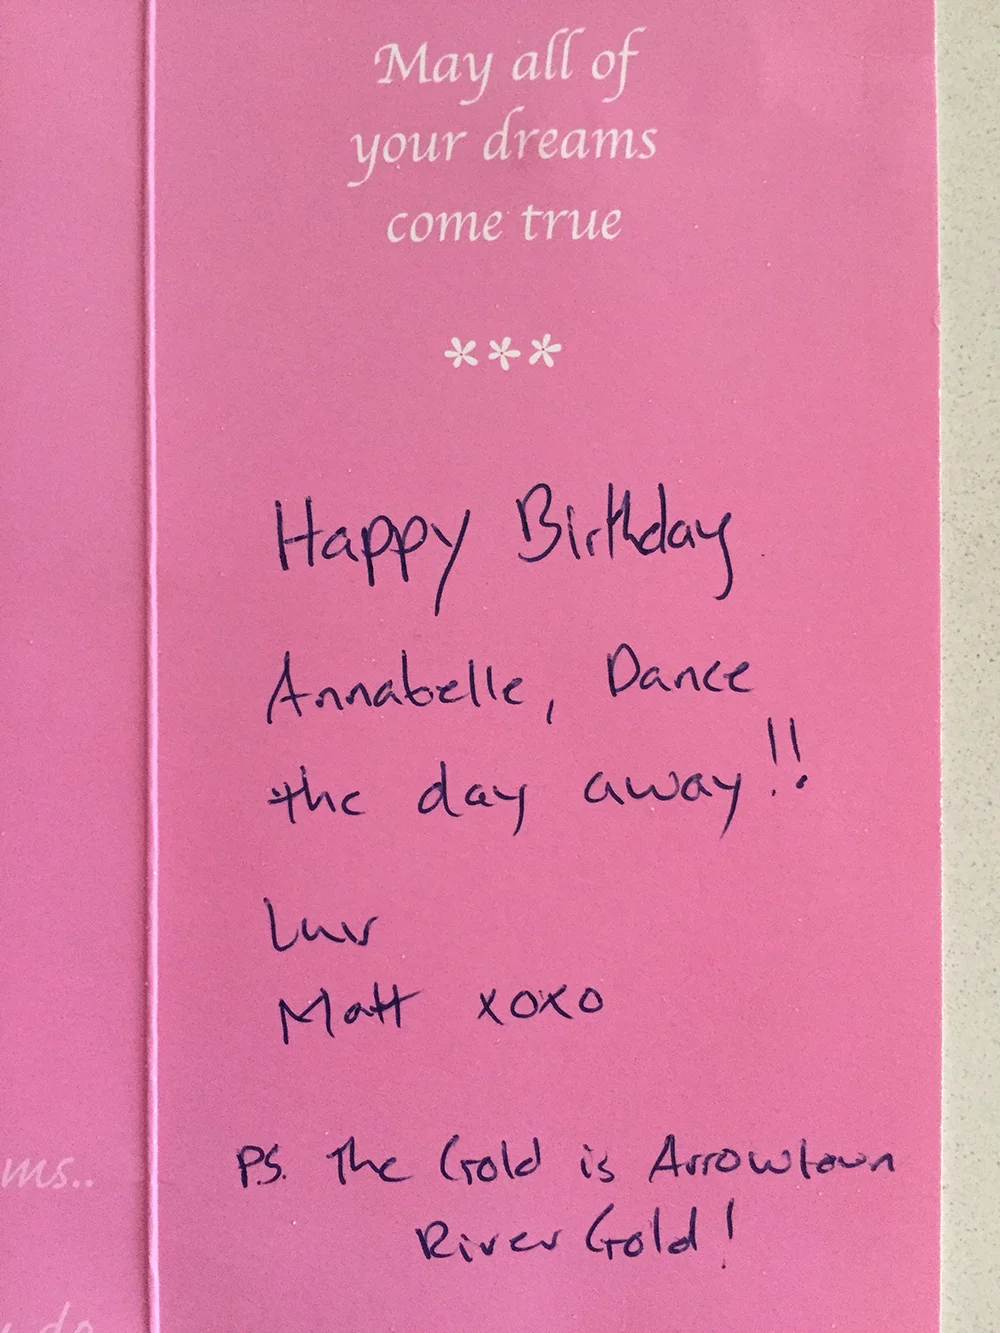 May all of
your dreams
come true
***
Happy Birthday
Annabelle, Dance
the day away!!
Luv
Matt xoxo
PS. The Gold is Arrowtown
River Gold!
ms..
do